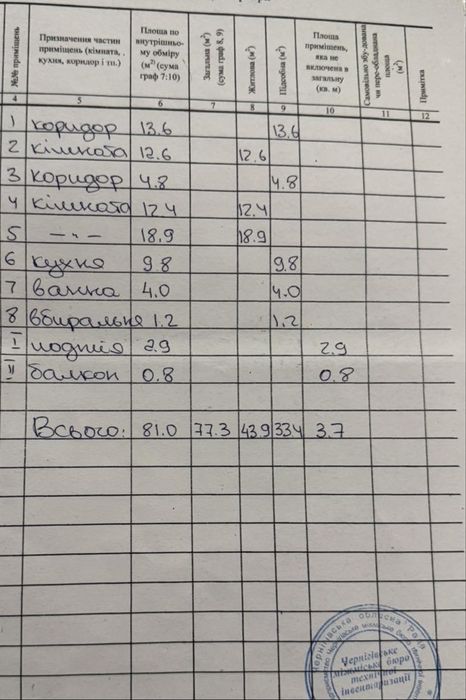 №№ приміщень
Призначення частин приміщень (кімната, кухня, коридор і тп.)
Площа по внутрішньому обміру (м²) (сума граф 7:10)
Загальна (м²) (сума граф 8, 9)
Житлова (м²)
Підсобна (м²)
Площа приміщень, яка не включена в загальну (кв. м)
Самовільно збудована чи переобладнана площа (м²)
Примітка
4 5 6 7 8 9 10 11 12
1 коридор 13.6 13.6
2 кімната 12.6 12.6
3 коридор 4.8 4.8
4 кімната 12.4 12.4
5 —"— 18.9 18.9
6 кухня 9.8 9.8
7 ванна 4.0 4.0
8 вбиральня 1.2 1.2
I лоджія 2.9 2.9
II балкон 0.8 0.8
Всього: 81.0 77.3 43.9 33.4 3.7
Чернігівська обласна рада
Чернігівське
міжміське бюро
технічної
інвентаризації